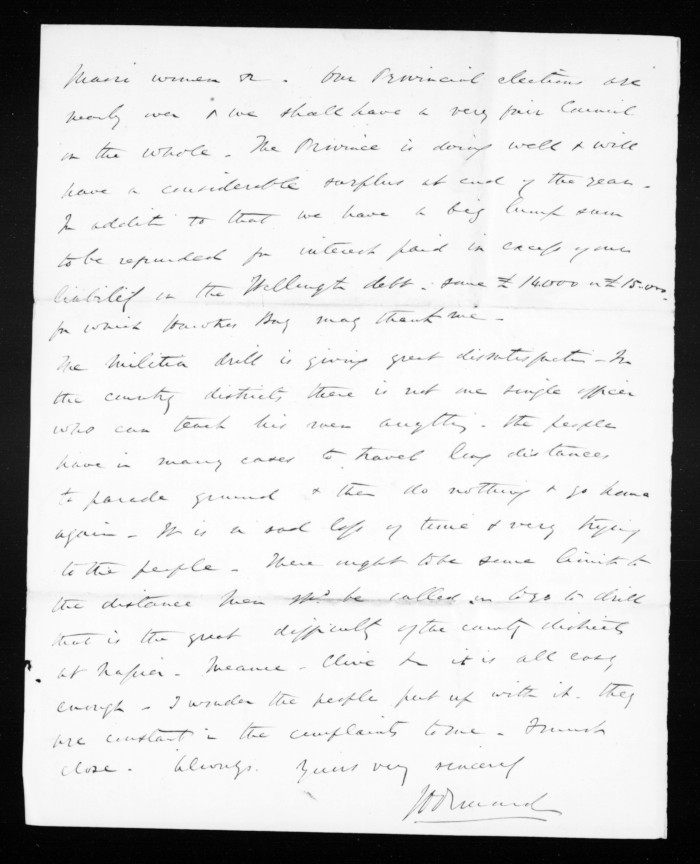 Maori women &c. Our Provincial elections are
nearly over & we shall have a very fair Council
on the whole - The Province is doing well & will
have a considerable surplus at end of the year -
In addition to that we have a big lump sum
to be refunded for interest paid in excess of our
liability on the Wellington debt - some £14000 or £15.000
for which Hawkes Bay may thank me -
The Militia drill is giving great dissatisfaction - In
the country districts there is not one single officer
who can teach his men anything - the people
have in many cases to travel long distances
to parade ground & then do nothing & go home
again - It is a sad loss of time & very trying
to the people - There ought to be some limit to
the distance men shd be called on to go to drill
that is the great difficulty of the country districts
at Napier - Meanee - Clive &c it is all easy
enough - I wonder the people put up with it - they
are constant in the complaints to me - I must
close - Always yours very sincerely
JD Ormond